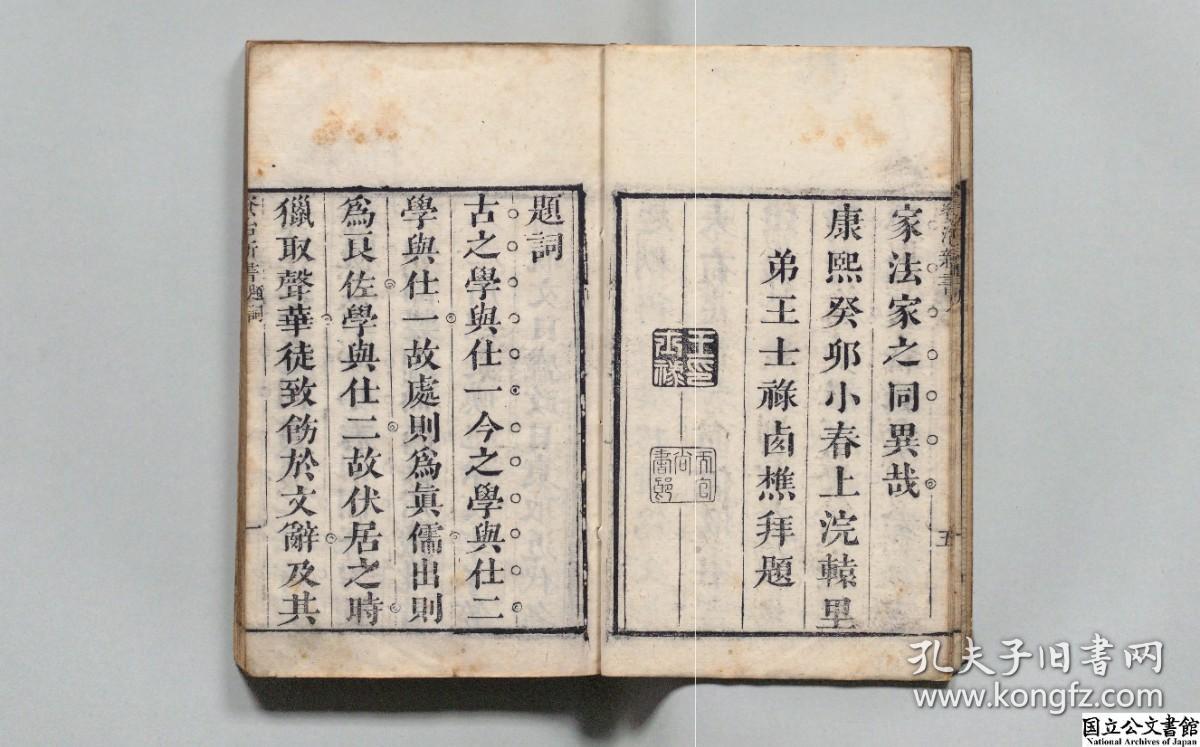 家法家之同異哉
康熙癸卯小春上浣轅里
弟王士祿卤樵拜題
五
題詞
古之學與仕一今之學與仕二
學與仕一故處則爲眞儒出則
爲良佐學與仕二故伏居之時
獵取聲華徒致飭於文辭及其
題詞
孔夫子旧書网
www.kongfz.com
国立公文書館
National Archives of Japan